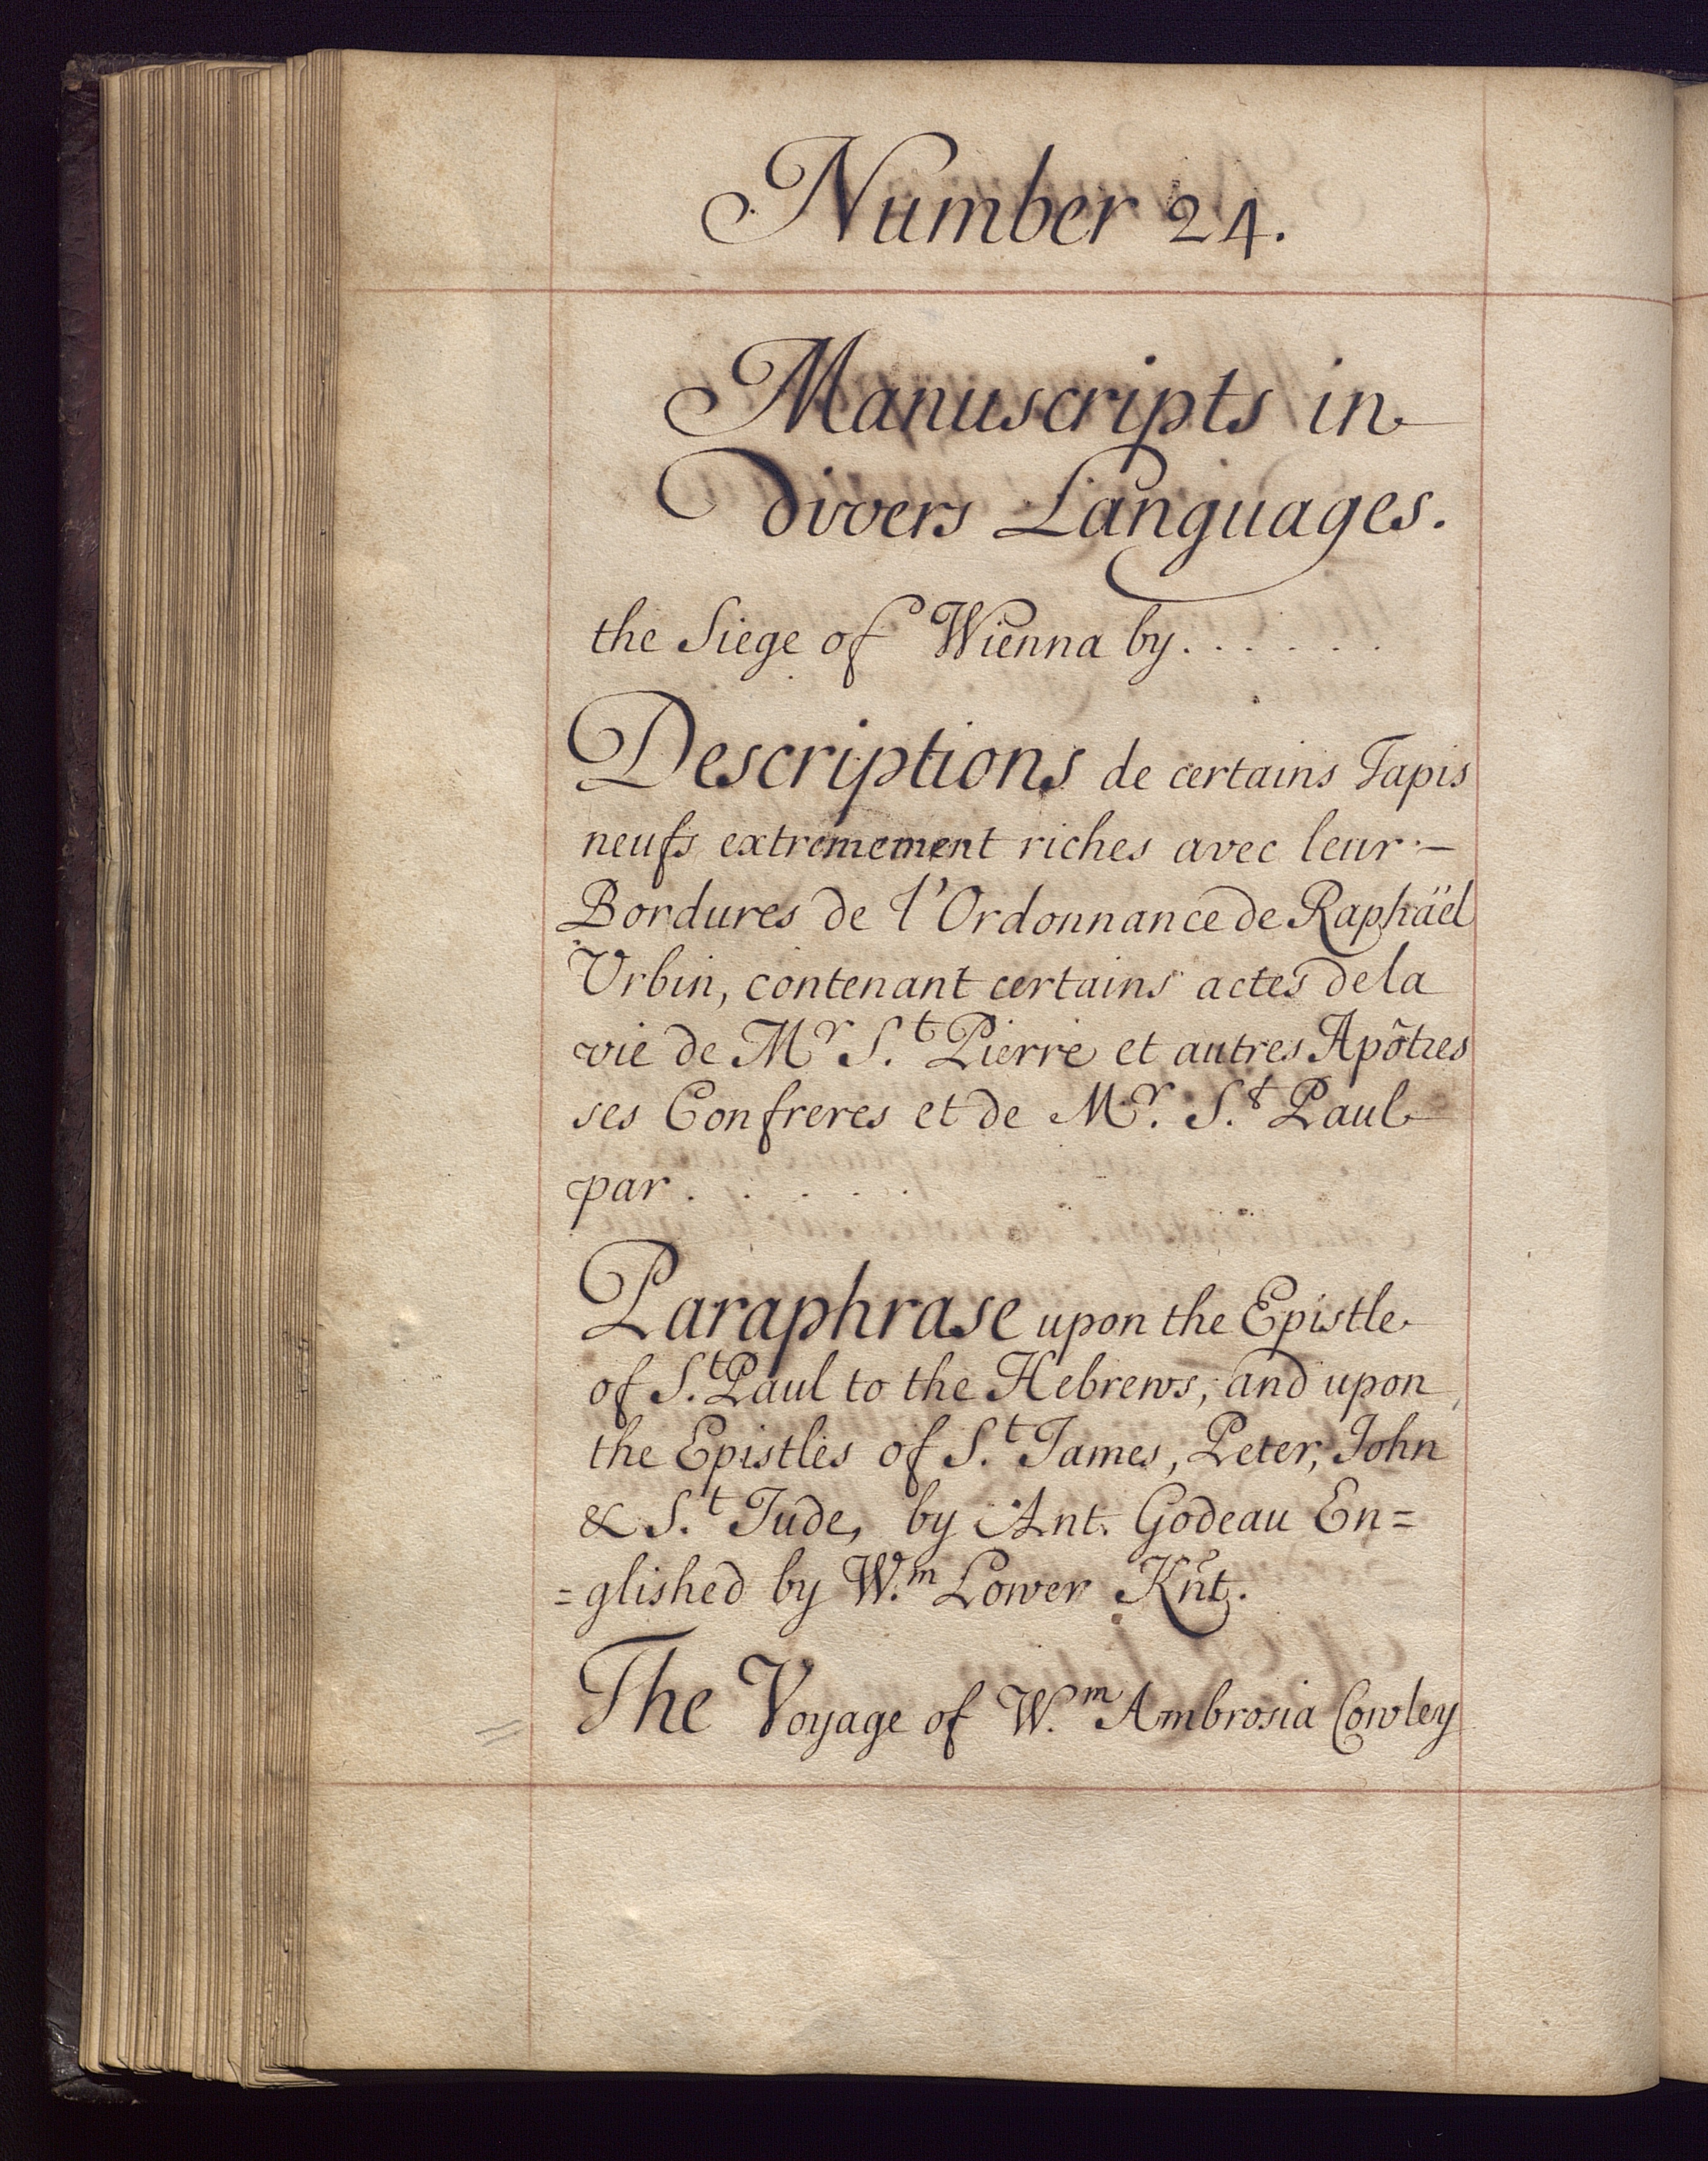 Number 24.
Manuscripts in
divers Languages.
the Siege of Wienna by. . . . . .
Descriptions de certains Tapis
neufs extremement riches avec leur.–
Bordures de l'Ordonnance de Raphäel
Urbin, contenant certains actes de la
vie de Mr S.t Pierre et autres Apõtres
ses Confreres et de Mr. S.t Paul
par . . . . .
Paraphrase upon the Epistle
of S.t Paul to the Hebrews, and upon
the Epistles of S.t James, Peter, John
& S.t Jude, by Ant. Godeau En=
=glished by W.m Lower Knt.
The Voyage of W.m Ambrosia Cowley